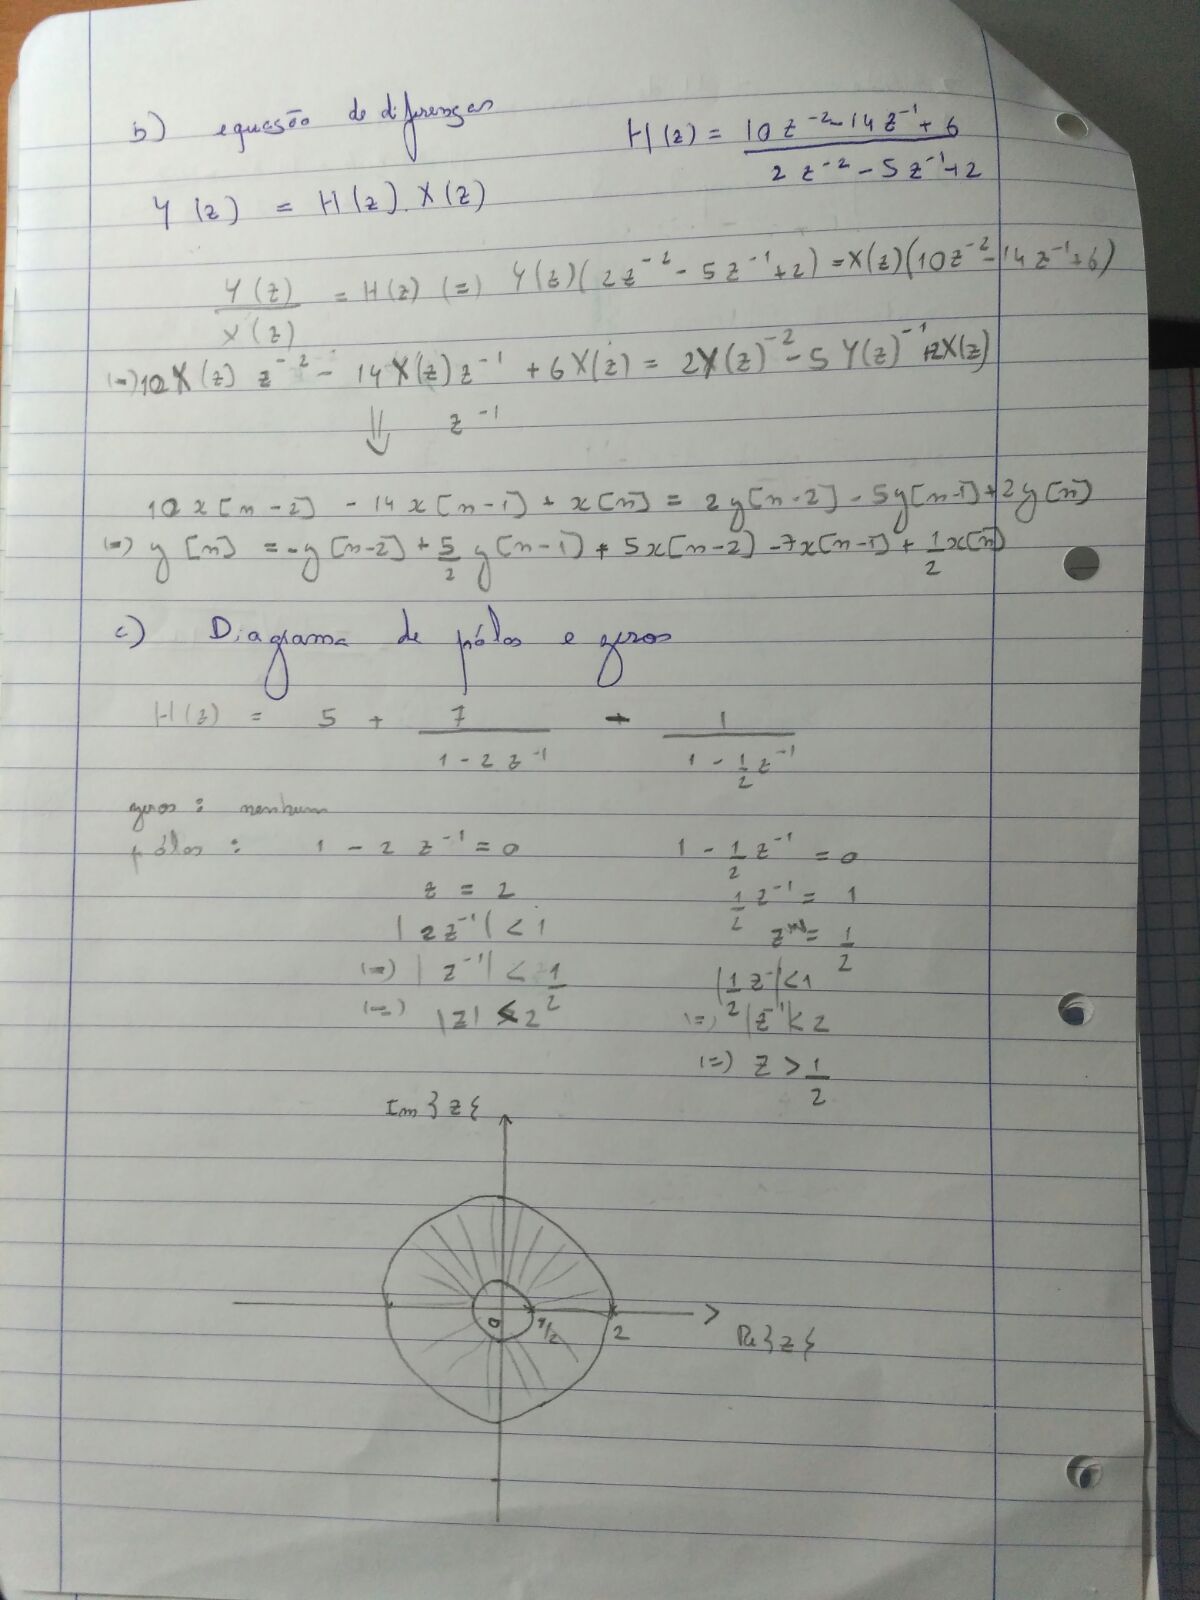 b) equasão de diferenças
H(z) = 10 z⁻² - 14 z⁻¹ + 6 / 2 z⁻² - 5 z⁻¹ + 2
Y(z) = H(z) . X(z)
Y(z) / X(z) = H(z) (=) Y(z)(2z⁻² - 5z⁻¹ + 2) = X(z)(10z⁻² - 14z⁻¹ + 6)
(=) 10X(z) z⁻² - 14X(z)z⁻¹ + 6X(z) = 2Y(z)⁻² - 5Y(z)⁻¹ + 2X(z)
⇓ z⁻¹
10x[n-2] - 14x[n-1] + x[n] = 2y[n-2] - 5y[n-1] + 2y[n]
(=) y[n] = -y[n-2] + 5/2 y[n-1] + 5x[n-2] - 7x[n-1] + 1/2 x[n]
c) Diagrama de pólos e zeros
H(z) = 5 + 7 / 1 - 2z⁻¹ - 1 / 1 - 1/2 z⁻¹
zeros : nenhum
pólos : 1 - 2 z⁻¹ = 0 1 - 1/2 z⁻¹ = 0
z = 2 1/2 z⁻¹ = 1
|2z⁻¹| < 1 z = 1/2
(=) |z⁻¹| < 1/2 |1/2 z⁻| < 1
(=) |z| < 2 (=) |z⁻¹| < 2
(=) z > 1/2
Im}z{
0 1/2 2
Re}z{